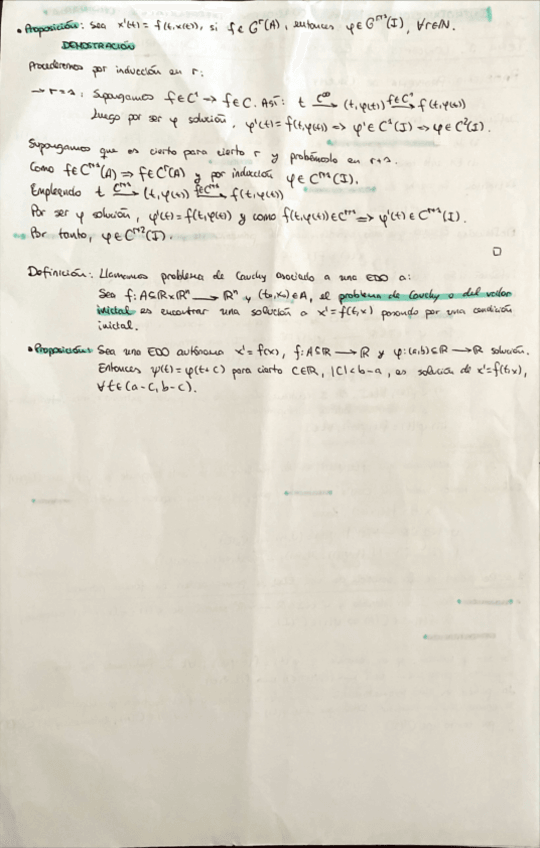 • Proposición: Sea x'(t) = f(t,x(t)), si f ∈ C^r(A), entonces φ ∈ C^{r+1}(I), ∀r∈ℕ.
DEMOSTRACIÓN
Procederemos por inducción en r:
→ r=1: Supongamos f∈C^1 ⇒ f∈C. Así: t —C^∞→ (t,φ(t)) —f∈C^1→ f(t,φ(t))
Luego por ser φ solución, φ'(t)=f(t,φ(t)) ⇒ φ'∈C^1(I) ⇒ φ∈C^2(I).
Supongamos que es cierto para cierto r y probémoslo en r+1.
Como f∈C^{r+1}(A) ⇒ f∈C^r(A) y por inducción φ∈C^{r+1}(I).
Empleando t —C^{r+1}→ (t,φ(t)) —f∈C^{r+1}→ f(t,φ(t))
Por ser φ solución, φ'(t)=f(t,φ(t)) y como f(t,φ(t))∈C^{r+1} ⇒ φ'(t)∈C^{r+1}(I).
Por tanto, φ∈C^{r+2}(I).
□
Definición: Llamamos problema de Cauchy asociado a una EDO a:
Sea f: A⊆ℝ×ℝ^n → ℝ^n y (t₀,x₀)∈A, el problema de Cauchy o del valor
inicial es encontrar una solución a x'=f(t,x) pasando por una condición
inicial.
• Proposición: Sea una EDO autónoma x'=f(x), f: A⊆ℝ → ℝ y φ:(a,b)⊆ℝ → ℝ solución.
Entonces ψ(t)=φ(t+c) para cierto c∈ℝ, |c|<b-a, es solución de x'=f(t,x),
∀t∈(a-c, b-c).